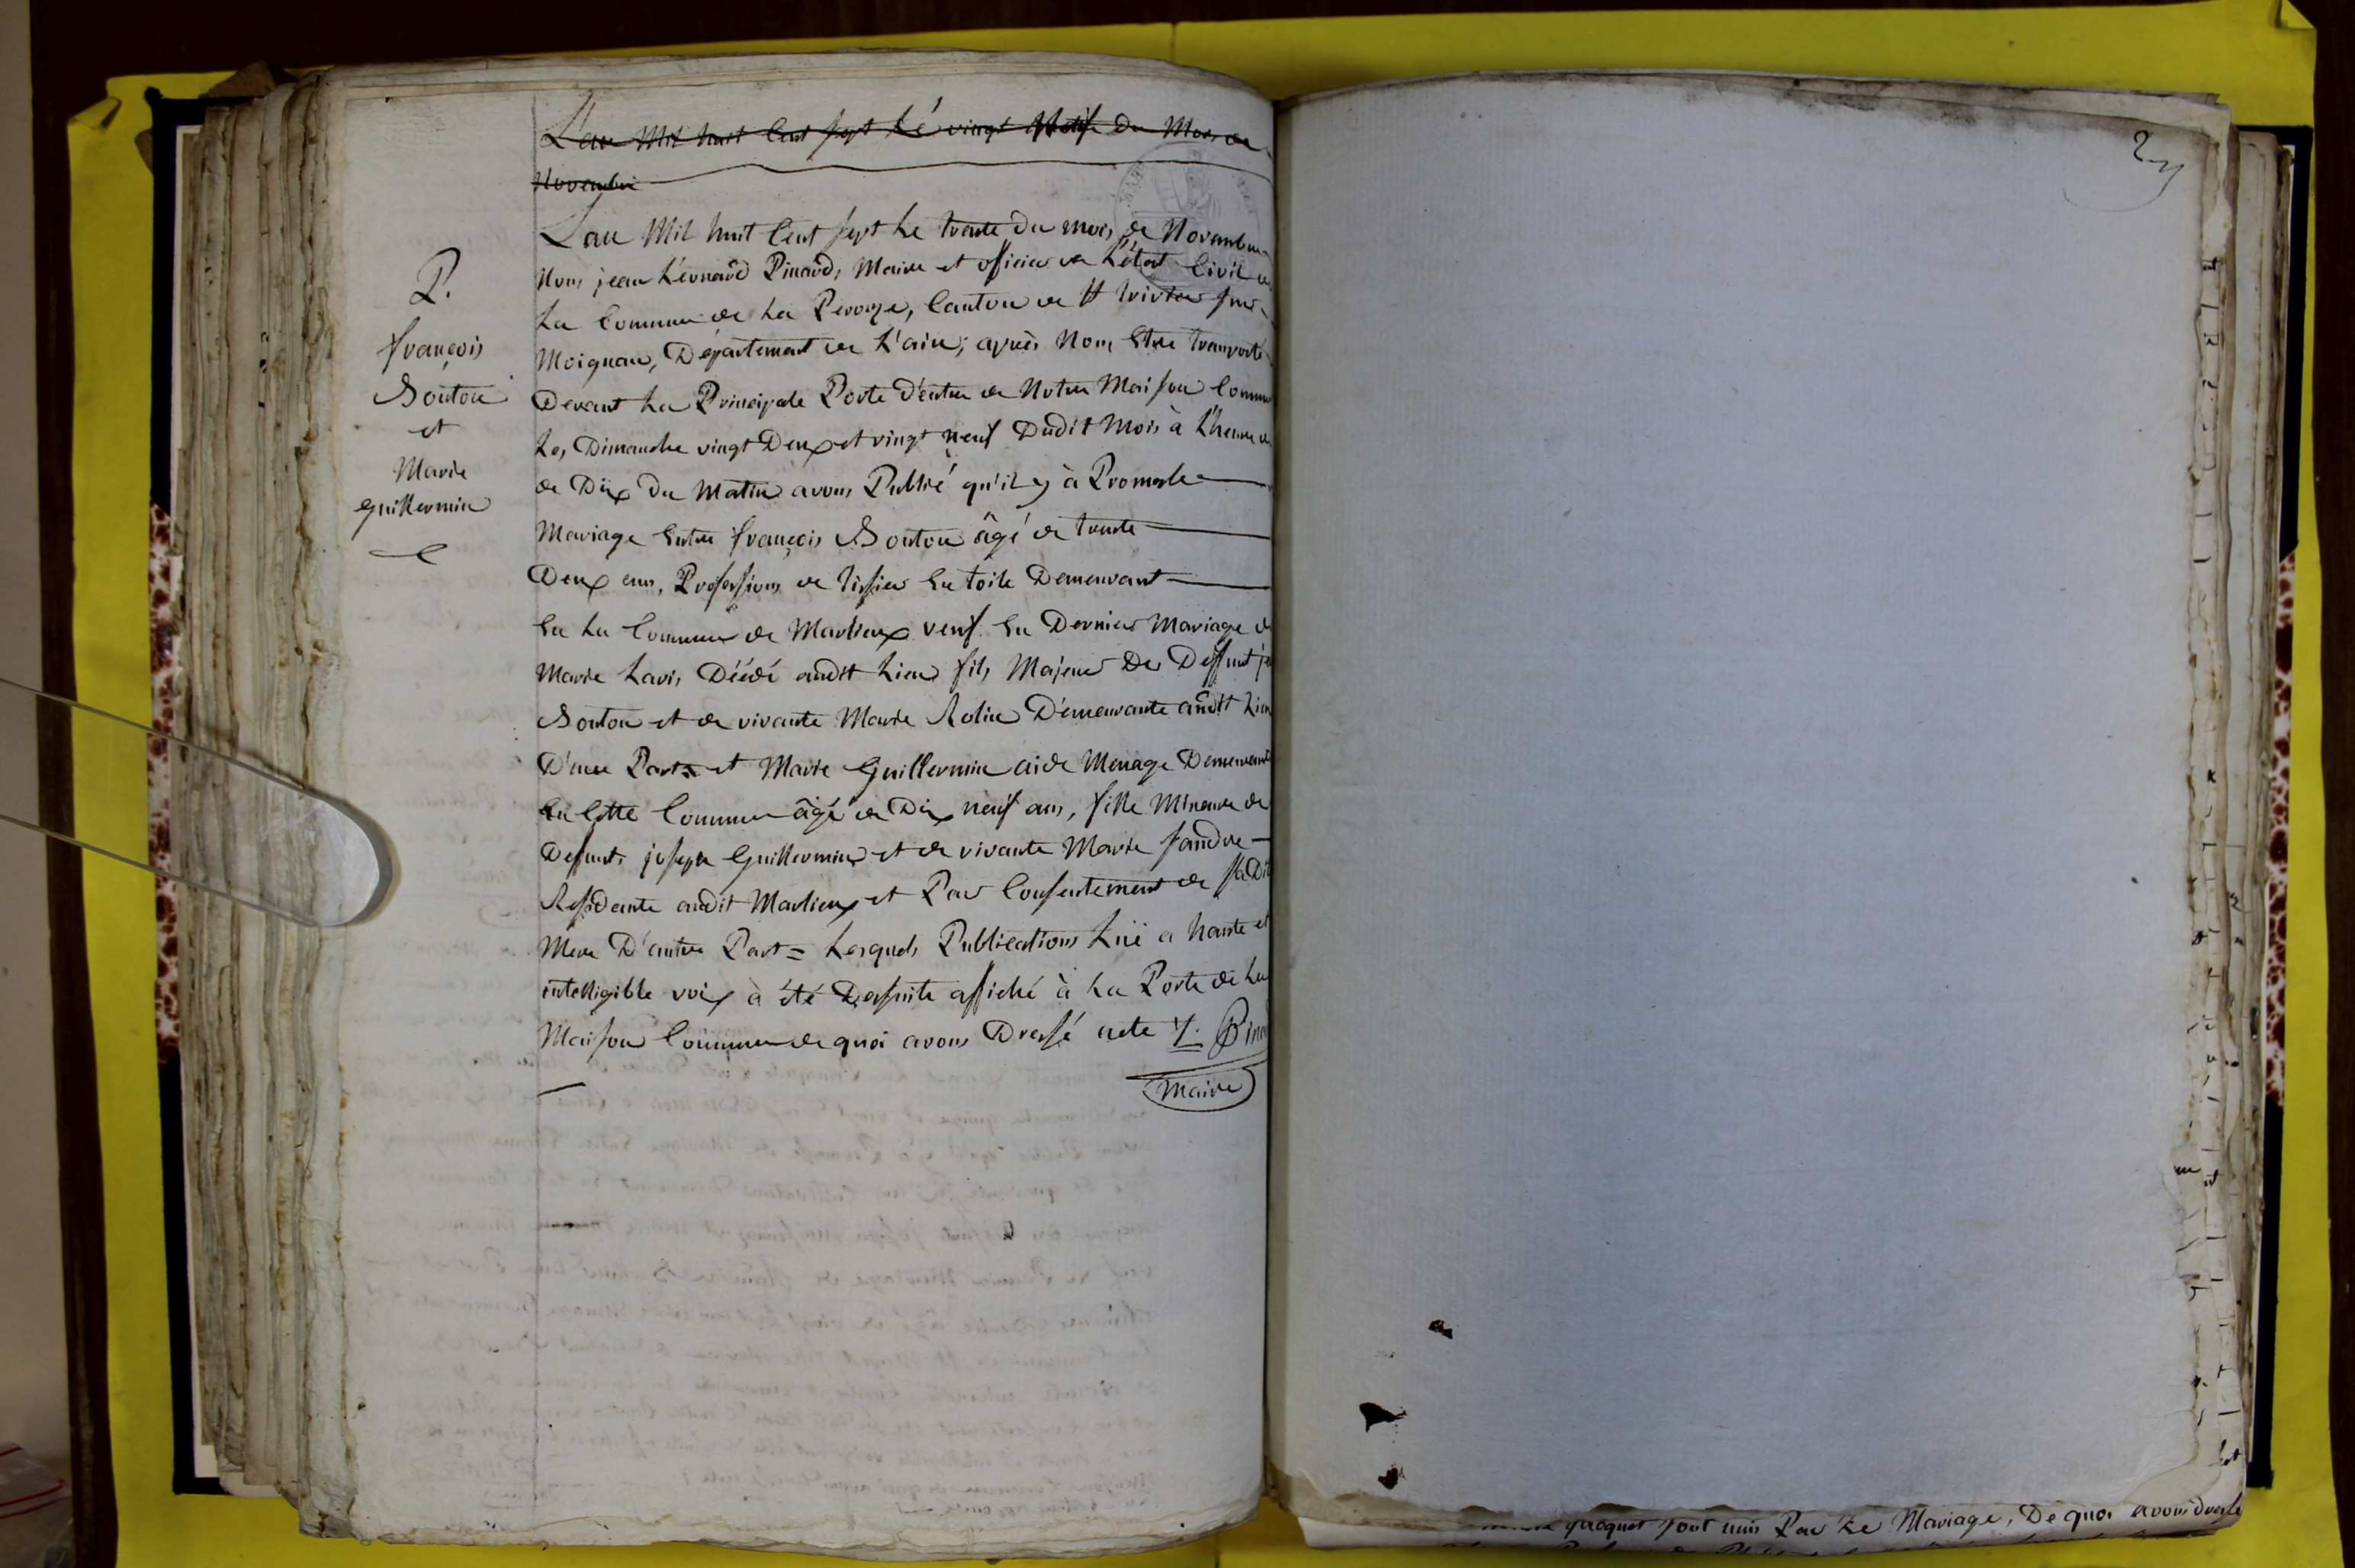 L'an Mil huit Cent sept Lé vingt du Mois de
Novembre
L'an Mil huit Cent sept Le trente du mois de Novembre
Nous jean Léonard Pinard, Maire et officier de L'état Civil de
La Commune de La Perouze, Canton de St trivier sur
Moignan, Département de L'ain; après Nous Etre transporté
Devant La Principale Porte d'entrée de Notre Maison Commune
Les Dimanche vingt Deux et vingt neuf Dudit Mois à L'heure de
de Dix du Matin avons Publié qu'il y à Promesse
Mariage Entre françois Bouton âgé de trente
Deux ans, Profession de tissier En toile Demeurant
En La Commune de Marlieux veuf En Dernier Mariage de
Marie Lavis Décédé audit Lieu fils Majeur De Deffunt
Bouton et de vivante Marie Rolin Demeurante audit Lieu
D'une Part et Marie Guillermin aide Menage Demeurante
En Cette Commune âgé de Dix neuf ans, fille Mineure de
Defunt joseph Guillermin et de vivante Marie fandre
Residente audit Marlieux et Par Consentement de sadit
Mere D'autre Part = Lesquels Publications Lüe a haute et
intelligible voix à été Desuite affiché à La Porte de La
Maison Commune de quoi avons Dressé acte
Maire
P.
françois
Bouton
et
Marie
guillermin
sont unis Par Le Mariage, De quoi avons dressé